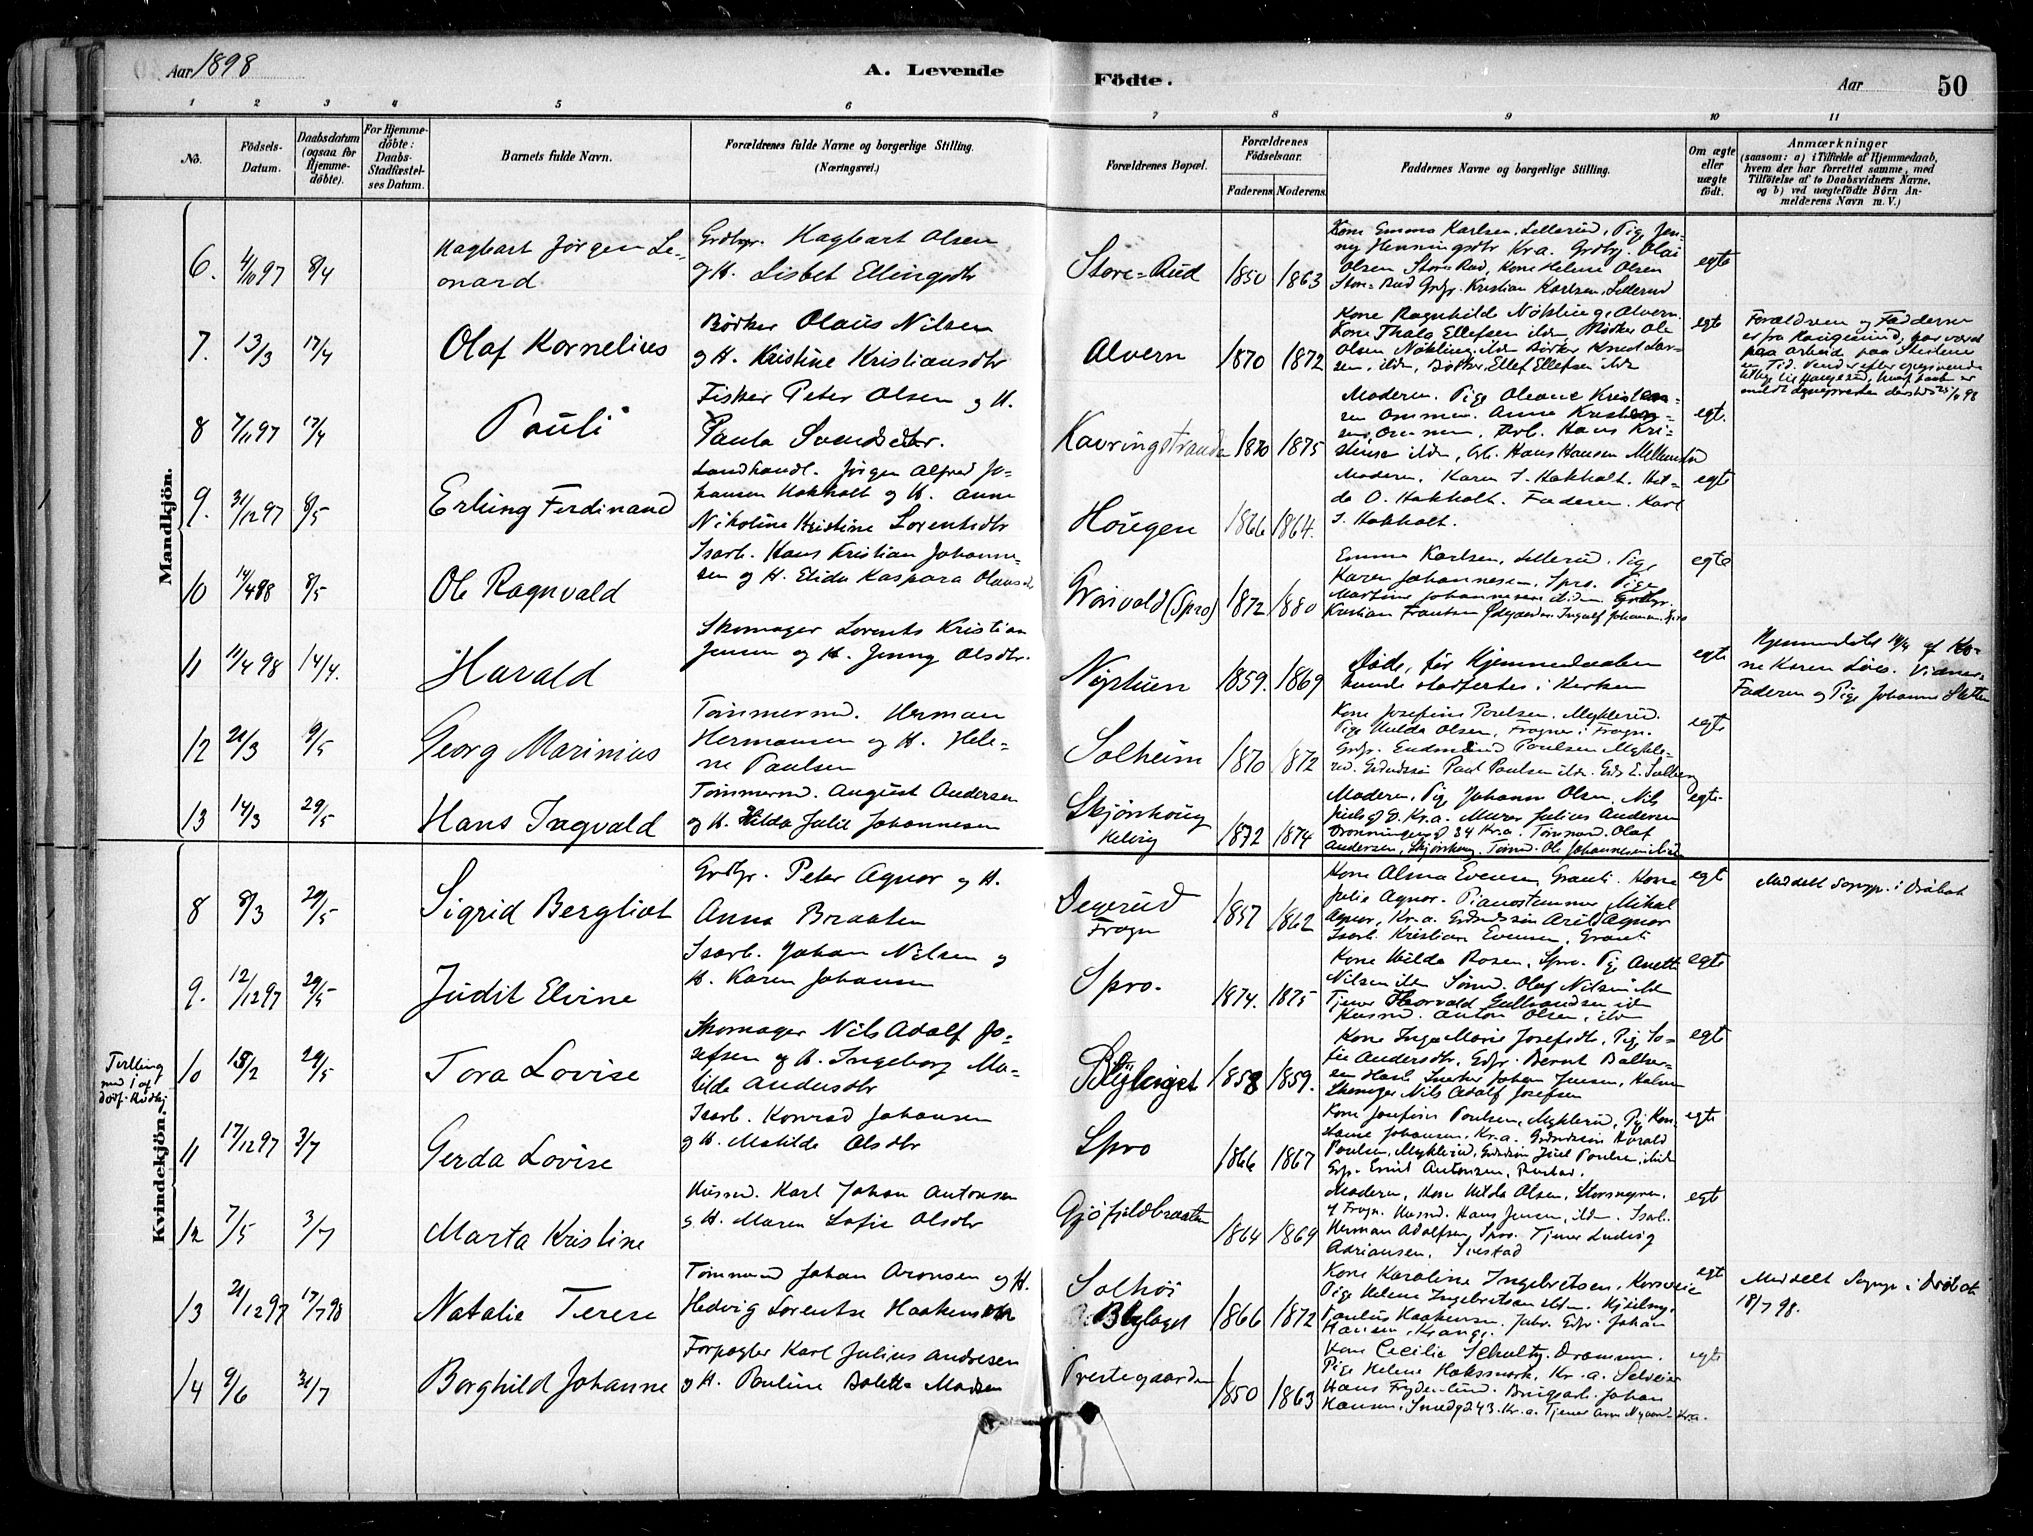 Aar 1898
A. Levende
Födte.
Aar
50
1 2 3 4 5 6 7 8 9 10 11
No.
Födsels-
Datum.
Daabsdatum
(ogsaa for
Hjemme-
döbte).
For Hjemme-
döbte:
Daabs-
Stadfæstel-
ses Datum.
Barnets fulde Navn.
Forældrenes fulde Navne og borgerlige Stilling.
(Næringsvei.)
Forældrenes Bopæl.
Forældrenes
Födselsaar.
Faderens. Moderens.
Faddernes Navne og borgerlige Stilling.
Om ægte
eller
uægte
födt.
Anmærkninger
(saasom: a) i Tilfælde af Hjemmedaab,
hvem der har forrettet samme, med
Tilföielse af to Daabsvidners Navne,
og b) ved uægtefödte Börn An-
melderens Navn m. V.)
Mandkjön.
6. 4/10 97 8/4
Hagbart Jörgen Le-
onard
Grdbgr. Hagbart Olsen
og H. Lisbet Ellingsdtr
Store=Rud 1850 1863
Kone Emma Karlsen, Lillerud, Pige Jen-
ny Henningsdtr Kr.a. Grdbr. Olai
Olsen Store Rud, Kone Helene Olsen
Store=Rud Grbr. Kristian Karlsen, Lillerud
egte
7. 13/3 17/4
Olaf Kornelius
Bödker Olaus Nilsen
og H. Kristine Kristiansdtr
Alvern 1870 1872
Kone Ragnhild Nökling, Alvern.
Kone Thala Ellefsen ildm, Bödker Ole
Olsen Nökling, ildm Bödker Knut Lar-
sen, ildm, Bödker Ellef Ellefsen ildm
egte
Forældrene og Fadderne
er fra Haugesund, har været
paa arbeid paa Stedene
en Tid. Vender efter opgivende
8 7/11 97 17/4
Pauli
Fisker Peter Olsen og H.
Paula Svendsdtr.
Kavringstranda 1870 1875
Moderen. Pige Oleane Kristen-
sen Ommen. Anna Kristen-
sen, Ommen, Arb. Hans Kri-
stensen ildm, Arb. Hans Hansen
egt.
9. 31/12 97 8/5
Erling Ferdinand
Landhandl. Jörgen Alfred Jo-
hansen Hakholt og H. Anne
Nikoline Kristine Lorentsdtr
Hougen 1866 1864.
Moderen, Karen J. Hakholt. Hil-
da O. Hakholt. Faderen. Karl
J. Hakholt.
egte
10 14/4 98 8/5
Ole Ragnvald
Isarb. Hans Kristian Johanne-
sen og H. Elida Kaspara Olausdtr
Granvold (Spro) 1872 1880
Emma Karlsen, Lillerud. Pige
Karen Johannesen, Spro. Pige
Martine Johannesen ildm. Grdbgr.
Kristian Frantsen
egte
11 11/4 98 14/4.
Harald
Skomager Lorents Kristian
Jensen og H. Jenny Olsdtr.
Nystuen 1859. 1869
Döde, för Hjemmedaaben
kunde stadfestes i Kirken
egte
Hjemmedöbt 14/4 af Ko-
ne Karen Löes. Vidner:
Faderen og Pige Johanne Sletten
12 21/3 9/5
Georg Marinius
Tömmermd. Herman
Hermansen og H. Hele-
ne Paulsen
Solheim 1870 1872
Kone Josefine Poulsen. Myklerud.
Pige Hilda Olsen, Fragner i Fragn.
Grbr. Gudmund Poulsen Mykle-
rud. Grdmdssön Paul Poulsen ildm. Grbr E. Solberg
egte
13 14/3 29/5
Hans Ingvald
Tömmermd. August Andersen
og H. Hilda Julie Johannesen
Skjönhoug
1872 1874
Moderen, Pige Johanne Olsen, Nils
Juels gd. Kr.a. Murer Julius Andersen
Dronningensgd 34 Kr.a. Tömmd. Olaf
Andersen, Skjönhoug. Tömd. Ole Johannesen ildm
egte.
Kvindekjön.
8 8/3 29/5
Sigrid Bergliot
Grdbr. Peter Agnor og H.
Anna Braaten
Degerud
Frogn
1857 1862
Kone Alma Evensen, Granti. Kone
Julie Agnor. Pianostemmer Mikal
Agnor, Kr.a. Grdmdssön Arild Agnor
Isarb. Kristian Evensen, Granti
egt
Meddelt Sogнpr. i Dröbak
9. 12/12 97 29/5
Judit Elvine
Isarb. Johan Nilsen og
H. Karen Johansen
Spro. 1874. 1875
Kone Hilda Rosen, Spro. Pige Anette
Nilsen ildm Sömd. Olaf Nilsen ildm
Tjener Thorvald Gulbrandsen ildm
Husmd. Anton Olsen, ildm
egte
Tvilling
med 1 af
dödf. Kvdkj.
10 15/2 29/5
Tora Lovise
Skomager Nils Adolf Jo-
sefsen og H. Ingeborg Ma-
tilde Andersdtr
Blylaget 1858 1859.
Kone Inga Marie Josefsdtr, Pige So-
fie Andersdtr, Grbr. Bernt Balter-
sen Hasle Snerker Johan Jensen, Holm
Skomager Nils Adolf Josefsen
egte
11 17/12 97 3/7
Gerda Lovise
Isarb. Konrad Johansen
og H. Matilde Olsdtr
Spro 1866 1867
Kone Josefine Poulsen, Myklerud, Pige Kon-
stanse Johansen, Kr.a. Grdmdssön Harald
Poulsen, Myklerud, Grdmdssön Juel Poulsen, ildm
Grbr. Emil Antonsen, Rustad.
egte
12 7/5 3/7
Marta Kristine
Husmd. Karl Johan Antonsen
og H. Maren Sofie Olsdtr
Gjöfjeldbraaten 1864 1869
Moderen, Kone Hilda Olsen, Stormyren,
i Frogn. Husmd. Hans Jensen, ildm. Isarb.
Herman Adolfsen, Spro. Tjener Ludvig
Adriansen, Svestad
egte
13 21/12 97 17/7 98
Natalie Terese
Tömmermd Johan Aronsen og H.
Hedvig Lorentse Haakensdtr
Solhöi
Blylaget
1866 1872
Kone Karoline Ingebretsen, Korsveien
Pige Helene Ingebretsen ildm.
Paulus Haakensen Jubr. Grbr. Johan
Hansen, Krange.
egt
Meddelt Sogнpr. i Dröbak
18/7 98.
14 9/6 31/7
Borghild Johanne
Forpagter Karl Julius Andresen
og H. Pauline Bolette Madsen
Prestegaarden 1850 1863
Kone Cecilie Schultz. Drammen.
Pige Helene Haksmork, Kr.a. Selveier
Hans Frydenlund. Brugsarb. Johan
Hansen, Smedgd 43. Kr.a. Tjener Nygaard Kr.a.
egte